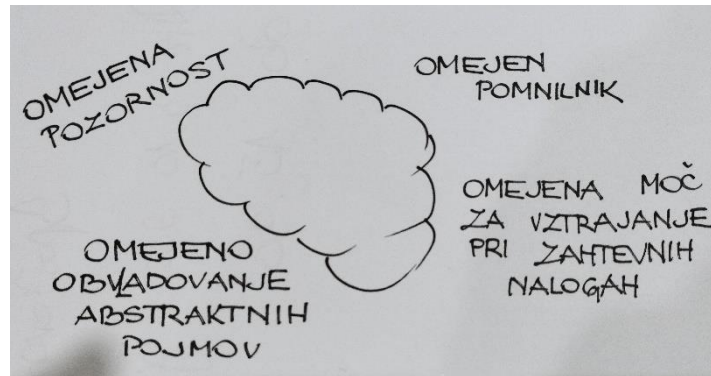 OMEJENA
POZORNOST
OMEJEN
POMNILNIK
OMEJENA MOČ
ZA VZTRAJANJE
PRI ZAHTEVNIH
NALOGAH
OMEJENO
OBVLADOVANJE
ABSTRAKTNIH
POJMOV